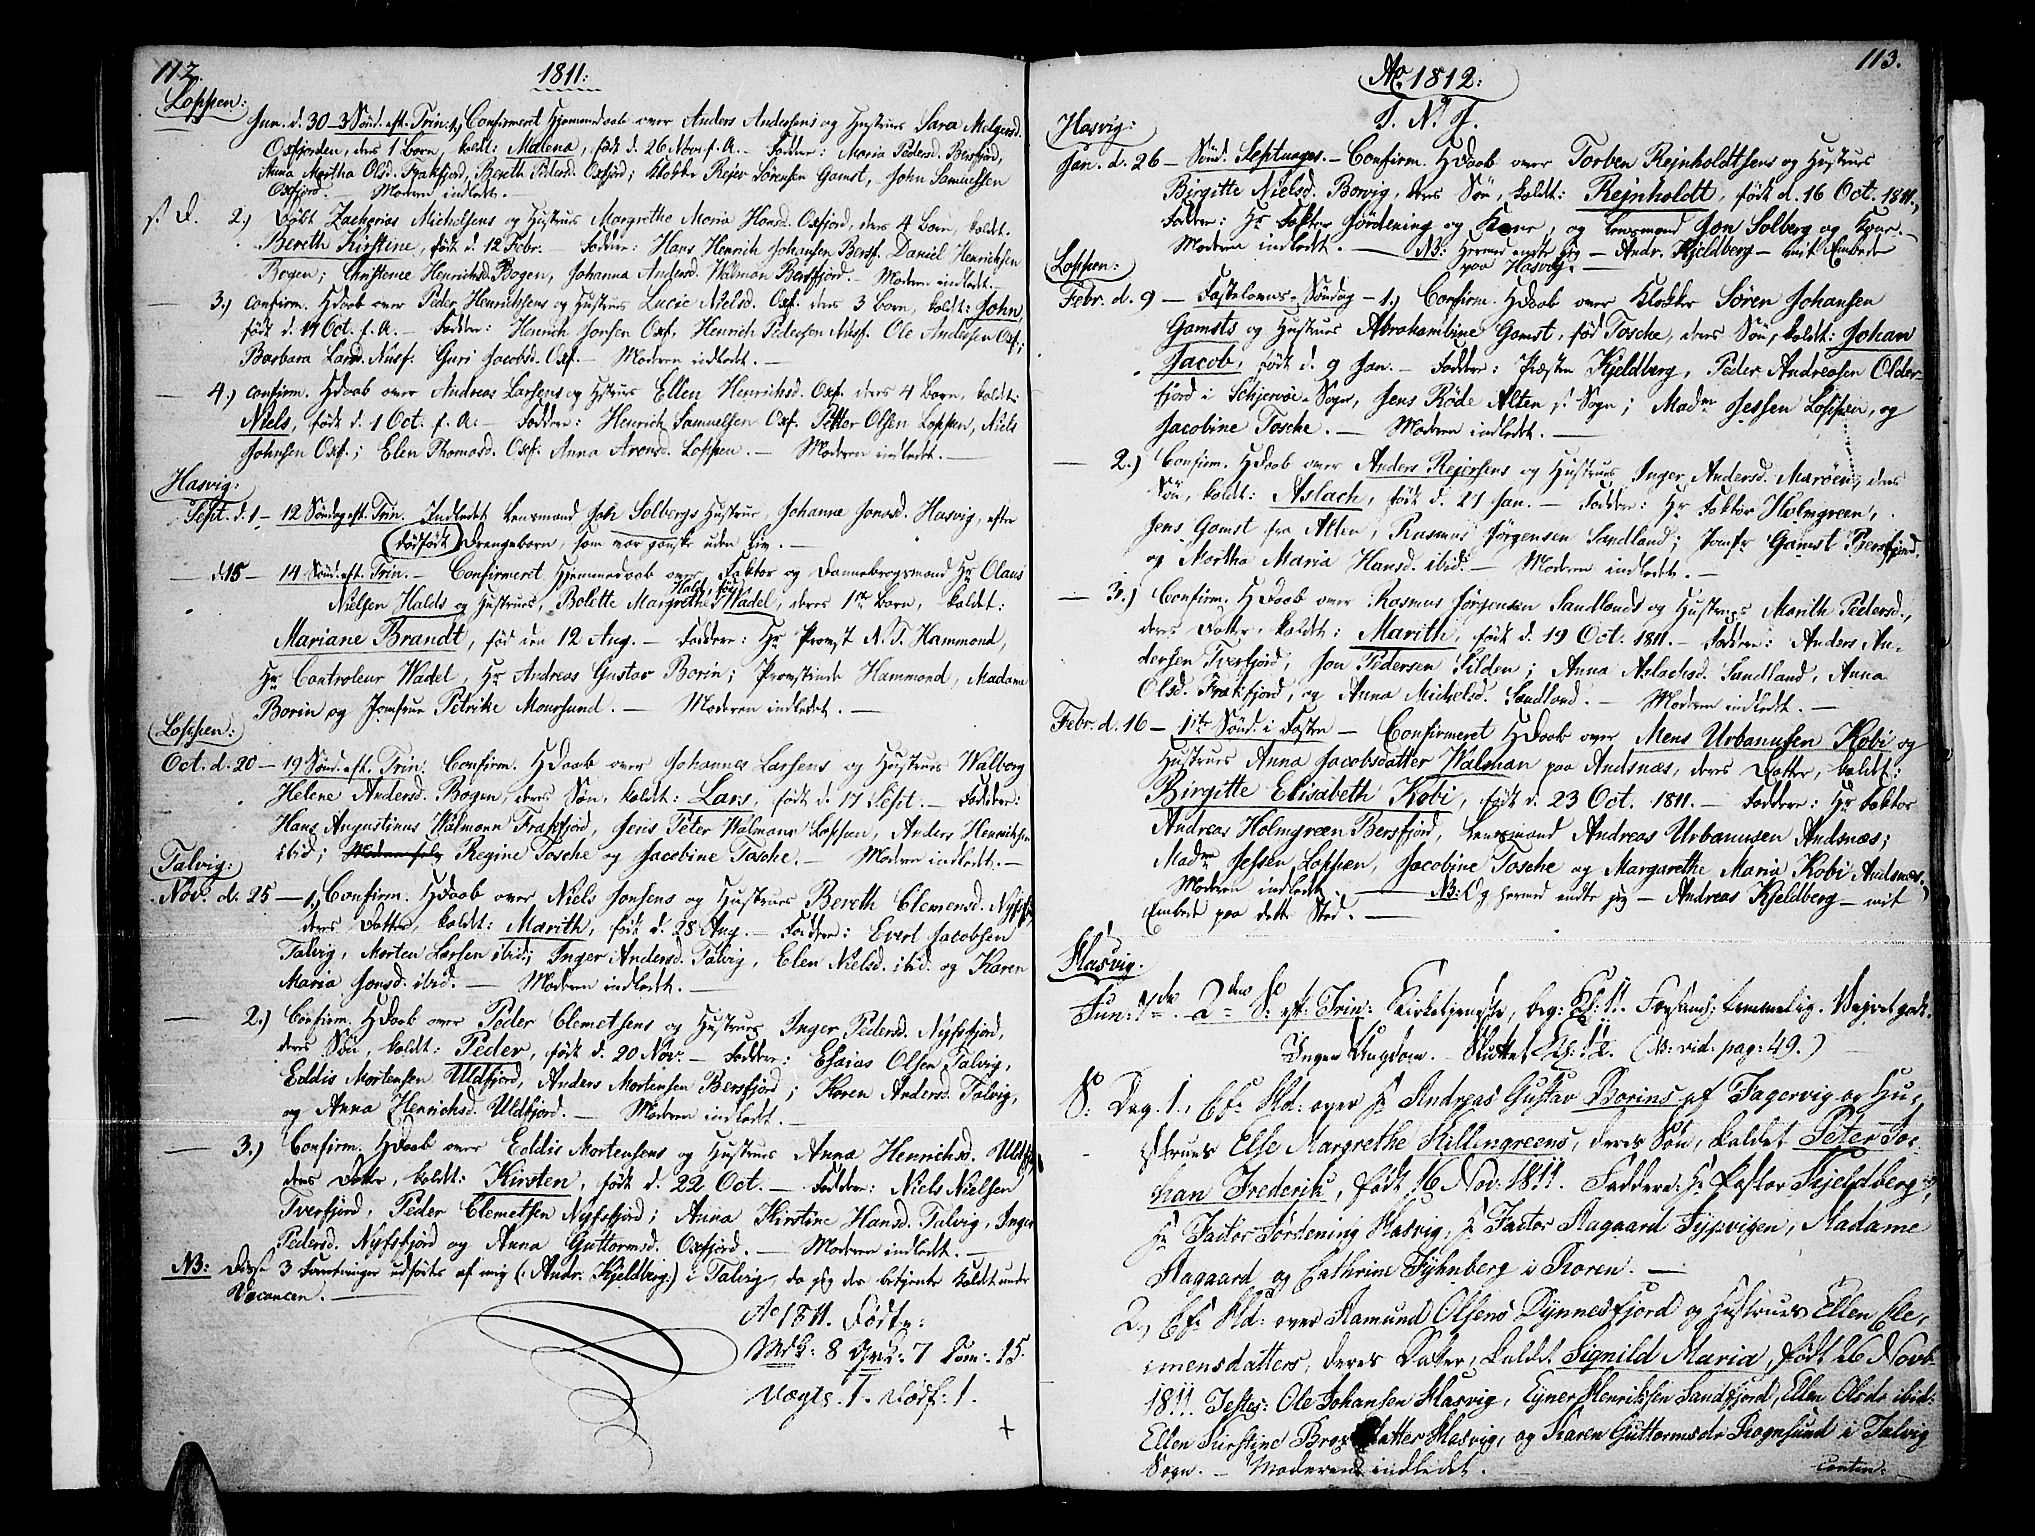 112.
1811:
Loppen:
Jun. d. 30 – 3 Sönd. eft. Trin: 1.) Confirmeret Hjemmedaab over Anders Andersens og Hustrues Sara Molgersd.
Oxfjorden, deres 1 Barn, kaldt: Malena, født d. 26 Novr. f. A. – Faddere: Maria Pedersd. Bersfjord,
Anna Martha Olsd. Frakfjord, Bereth Pedersd. Oxfjord; Klokker Rejer Sörensen Gamst, John Samuelsen
Oxfjord. Moderen indledet. –
s. D. 2.) Döbt Zacharias Michelsens og Hustrues Margrethe Maria Hansd. Oxfjord, deres 4 Barn, kaldt:
Bereth Kirstine, født d. 12 Febr. – Faddere: Hans Henrich Johansen Bersf. Daniel Henrichsen
Bogen; Christence Henrichsd. Bogen, Johanna Andersd. Walman Bersfjord. – Moderen indledet. –
3.) Confirm. Hdaab over Peder Henrichsens og Hustrues Lucie Nielsd. Oxf. deres 3 Barn, kaldt: John,
født d. 17 Oct. f. A. – Faddere: Henrich Jonsen Oxf. Henrich Pedersen Nusf. Ole Andersen Oxf;
Barbara Larsd. Nusf. Guri Jacobsd. Oxf. – Moderen indledet. –
4.) Confirm. Hdaab over Andreas Larsens og Hustrues Ellen Henrichsd. Oxf. deres 4 Barn, kaldt:
Niels, født d. 1 Oct. f. A. – Faddere: Henrich Samuelsen Oxf. Petter Olsen Loppen, Niels
Johnsen Oxf.; Elen Thomasd. Oxf. Anna Aronsd. Loppen. – Moderen indledet. –
Hasvig:
Sept. d. 1 – 12 Söndag eft. Trin. Indledet Lensmand Joh Solbergs Hustrue, Johanna Jonasd. Hasvig, efter
dödfödt Drengebarn, som var ganske uden Liv. –
– d. 15 – 14 Sönd. eft. Trin. – Confirmeret Hjemmedaab over Faktor og Dannebrogsmand Hr Olaus
Nielsen Halds og Hustrues, Bolette Margrethe Halds, fød Wadel, deres 1ste Barn, kaldet:
Mariane Brandt, fød den 12 Aug. – Faddere: Hr Provst N. T. Hammond,
Hr Controleur Wadel, Hr Andreas Gustav Borin; Provstinde Hammond, Madame
Borin og Jomfrue Petrikke Moursund. – Moderen indledet. –
Loppen:
Oct. d. 20 – 19 Sönd. eft. Trin: Confirm. Hdaab over Johannes Larsens og Hustrues Walborg
Helene Andersd. Bogen, deres Sön, kaldt: Lars, født d. 17 Sept. – Faddere:
Hans Augustinus Walmann Frakfjord, Jens Peter Walmann Loppen, Anders Henrichsen
ibid; Regine Tosche og Jacobine Tosche. – Moderen indledet. –
Talvig:
Nov. d. 25 – 1.) Confirm. Hdaab over Niels Jonsens og Hustrues Bereth Clemensd. Nyfsfj.
deres Datter, kaldt: Marith, født d. 28 Aug. – Faddere: Evert Jacobsen
Talvig, Morten Larsen ibid; Inger Andersd. Talvig, Elen Nielsd. ibid. og Karen
Maria Jonsd. ibid. – Moderen indledet. –
– 2.) Confirm. Hdaab over Peder Clemetsens og Hustrues Inger Pedersd. Nyfsfjord,
deres Sön, kaldt: Peder, født d. 20 Nov. – Faddere: Esaias Olsen Talvig,
Eddis Mortensen Uldfjord, Anders Mortensen Bersfjord; Karen Andersd. Talvig,
og Anna Henrichsd. Uldfjord. – Moderen indledet. –
– 3.) Confirm. Hdaab over Eddis Mortensens og Hustrues Anna Henrichsd. Uldfj.
deres Datter, kaldt: Kirsten, født d. 22 Oct. – Faddere: Niels Nielsen
Tverfjord, Peder Clemetsen Nyfsfjord; Anna Kirstine Hansd. Talvig, Inger
Pedersd. Nyfsfjord og Anna Guttormsd. Oxfjord. – Moderen indledt. –
NB: Disse 3 Forretninger udførtes af mig (: Andr. Kjeldberg:) i Talvig, da jeg der betjente Kaldet under
Vacancen. –
Ao 1811. Födte:
Mdk: 8 Qvk: 7 Sum: 15
Uægte. 1. Dödf: 1.
113.
Ao 1812:
I. N. J.
Hasvig:
Jan. d. 26 – Sönd. Septuages. – Confirm. Hdaab over Torben Rejnholdtsens og Hustrues
Birgitte Nielsd. Borvig, deres Sön, kaldt: Rejnholdt, født d. 16 Oct. 1811.
Faddere: Hr Faktor Jördening og Kone, og Lensmand Jon Solberg og Kone. –
Moderen indledt. – NB: Hermed endte jeg – Andr. Kjeldberg – mit Embede
paa Hasvig. –
Loppen:
Febr. d. 9 – Fastelavns-Söndag – 1.) Confirm. Hdaab over Klokker Sören Johansen
Gamsts og Hustrues Abrahambine Gamst, fød Tosche, deres Sön, kaldt: Johan
Jacob, født d. 9 Jan. – Faddere: Præsten Kjeldberg, Peder Andreasen Older-
fjord i Schjervöe-Sogn, Jens Röde Alten s. Sogn; Madme Jessen Loppen, og
Jacobine Tosche. – Moderen indledet. –
– 2.) Confirm. Hdaab over Anders Rejersens og Hustrues Inger Andersd. Maröen, deres
Sön, kaldt: Aslach, født d. 27 Jan. – Faddere: Hr Faktor Holmgreen,
Jens Gamst fra Alten, Rasmus Jörgensen Sandland; Jomfr Gamst Bersfjord,
og Martha Maria Hansd. ibid. – Moderen indledet. –
– 3.) Confirm. Hdaab over Rasmus Jörgensen Sandlands og Hustrues Marith Pedersd.,
deres Datter, kaldt: Marith, født d. 19 Oct. 1811. – Faddere: Anders An-
dersen Tverfjord, Jon Pedersen Silden; Anna Aslachsd. Sandland, Anna
Olsd. Frakfjord, og Anna Michelsd. Sandland. – Moderen indledet. –
Febr. d. 16 – 1ste Sönd. i Fasten – Confirmeret Hdaab over Mens Urbanusen Kobi og
Hustrues Anna Jacobsdatter Walman paa Andsnæs, deres Datter, kaldt:
Birgitte Elisabeth Kobi, født d. 23 Oct. 1811. – Faddere: Hr Faktor
Andreas Holmgreen Bersfjord, Lensmand Andreas Urbanusen Andsnæs;
Madme Jessen Loppen, Jacobine Tosche og Margarethe Maria Kobi Andsnæs.
Moderen indledt. – NB: Og hermed endte jeg – Andreas Kjeldberg – mit
Embede paa dette Sted. –
Hasvig.
Jun: 7de 2den S: eft. Trin: Kirketjeneste, beg: Kl: 11. Forsaml: temmelig. Vejret godt.
Ingen Ungdom. – Sluttet Kl: 12. (NB: vid. pag: 49.) –
S: Dag. 1., Cf: Hd: over Hr Andreas Gustav Borins af Fagervig og Hu-
strues Else Margrethe Killengreens, deres Sön, kaldet Peter Jo-
han Frederik, født 16 Nov: 1811. Faddere: Hr Pastor Kjeldberg,
Hr Factor Jördening Hasvig, Hr Factor Aagaard , Madame
Aagaard og Cathrine Fyhnberg i Koren. –
2., Cf: Hd: over Aamund Olsens Dynnesfjord og Hustrues Ellen Cle-
mensdatters, deres Datter, kaldet Signild Maria, født 26 Novb:
1811. Testes: Ole Johansen Hasvig, Eyner Henriksen Sandfjord, Ellen Olsdr ibid:
Ellen Kirstine datter Hasvig, og Karen Guttormsdr Rognsund i Talvig
Sogn. – Moderen indledet.
contin: